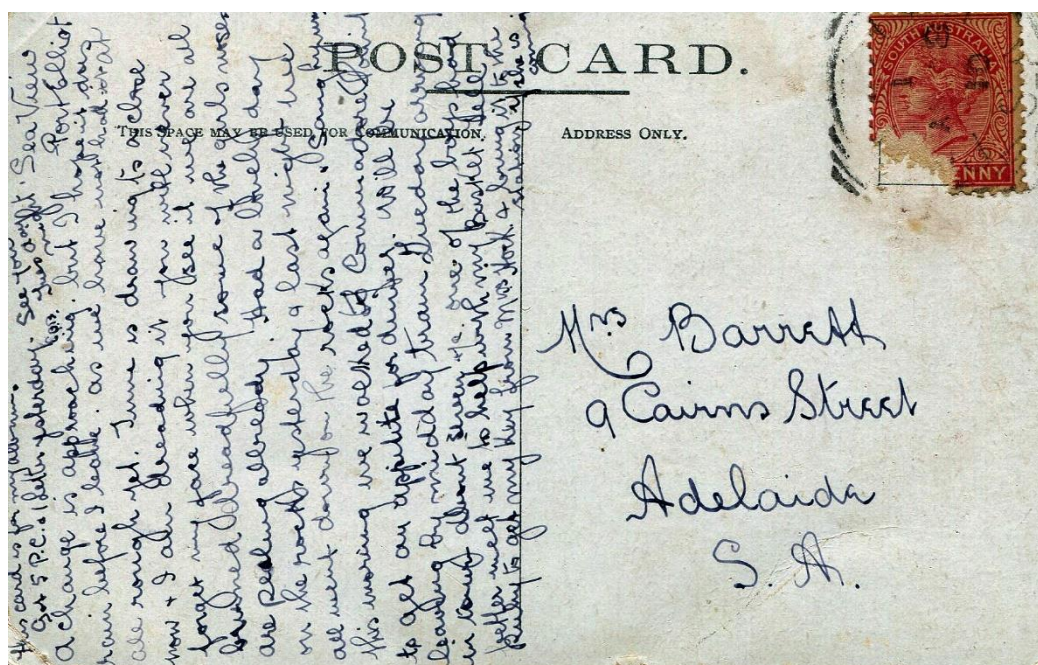 POST CARD.
THIS SPACE MAY BE USED FOR COMMUNICATION.
ADDRESS ONLY.
SOUTH AUSTRALIA
PENNY
Mrs Barrett
9 Cairns Street
Adelaide
S. A.
this card is for my album. See you
Got 5 P.C. & letter yesterday. this aft. Sea View
Port Elliot
a change is approaching but I hope it don't
rain before I leave. as we have not had
rough yet. Time is drawing to a close
now & I am dreading it you will never
forget my face when you see it we are all
burned dreadfully some of the girls noses
are peeling allready. Had a lovely day
on the rocks yesterday & last night we
all went down on the rocks again. Sang hymns
this morning we walked to Commadore Point
to get an appitite for dinner. Will be
leaving by midday train Tuesday arriving
in town about seven one of the boys had
better meet me to help with my basket. Tell
Ruby to get my key from Mrs Hook & bring it to the
station if she is